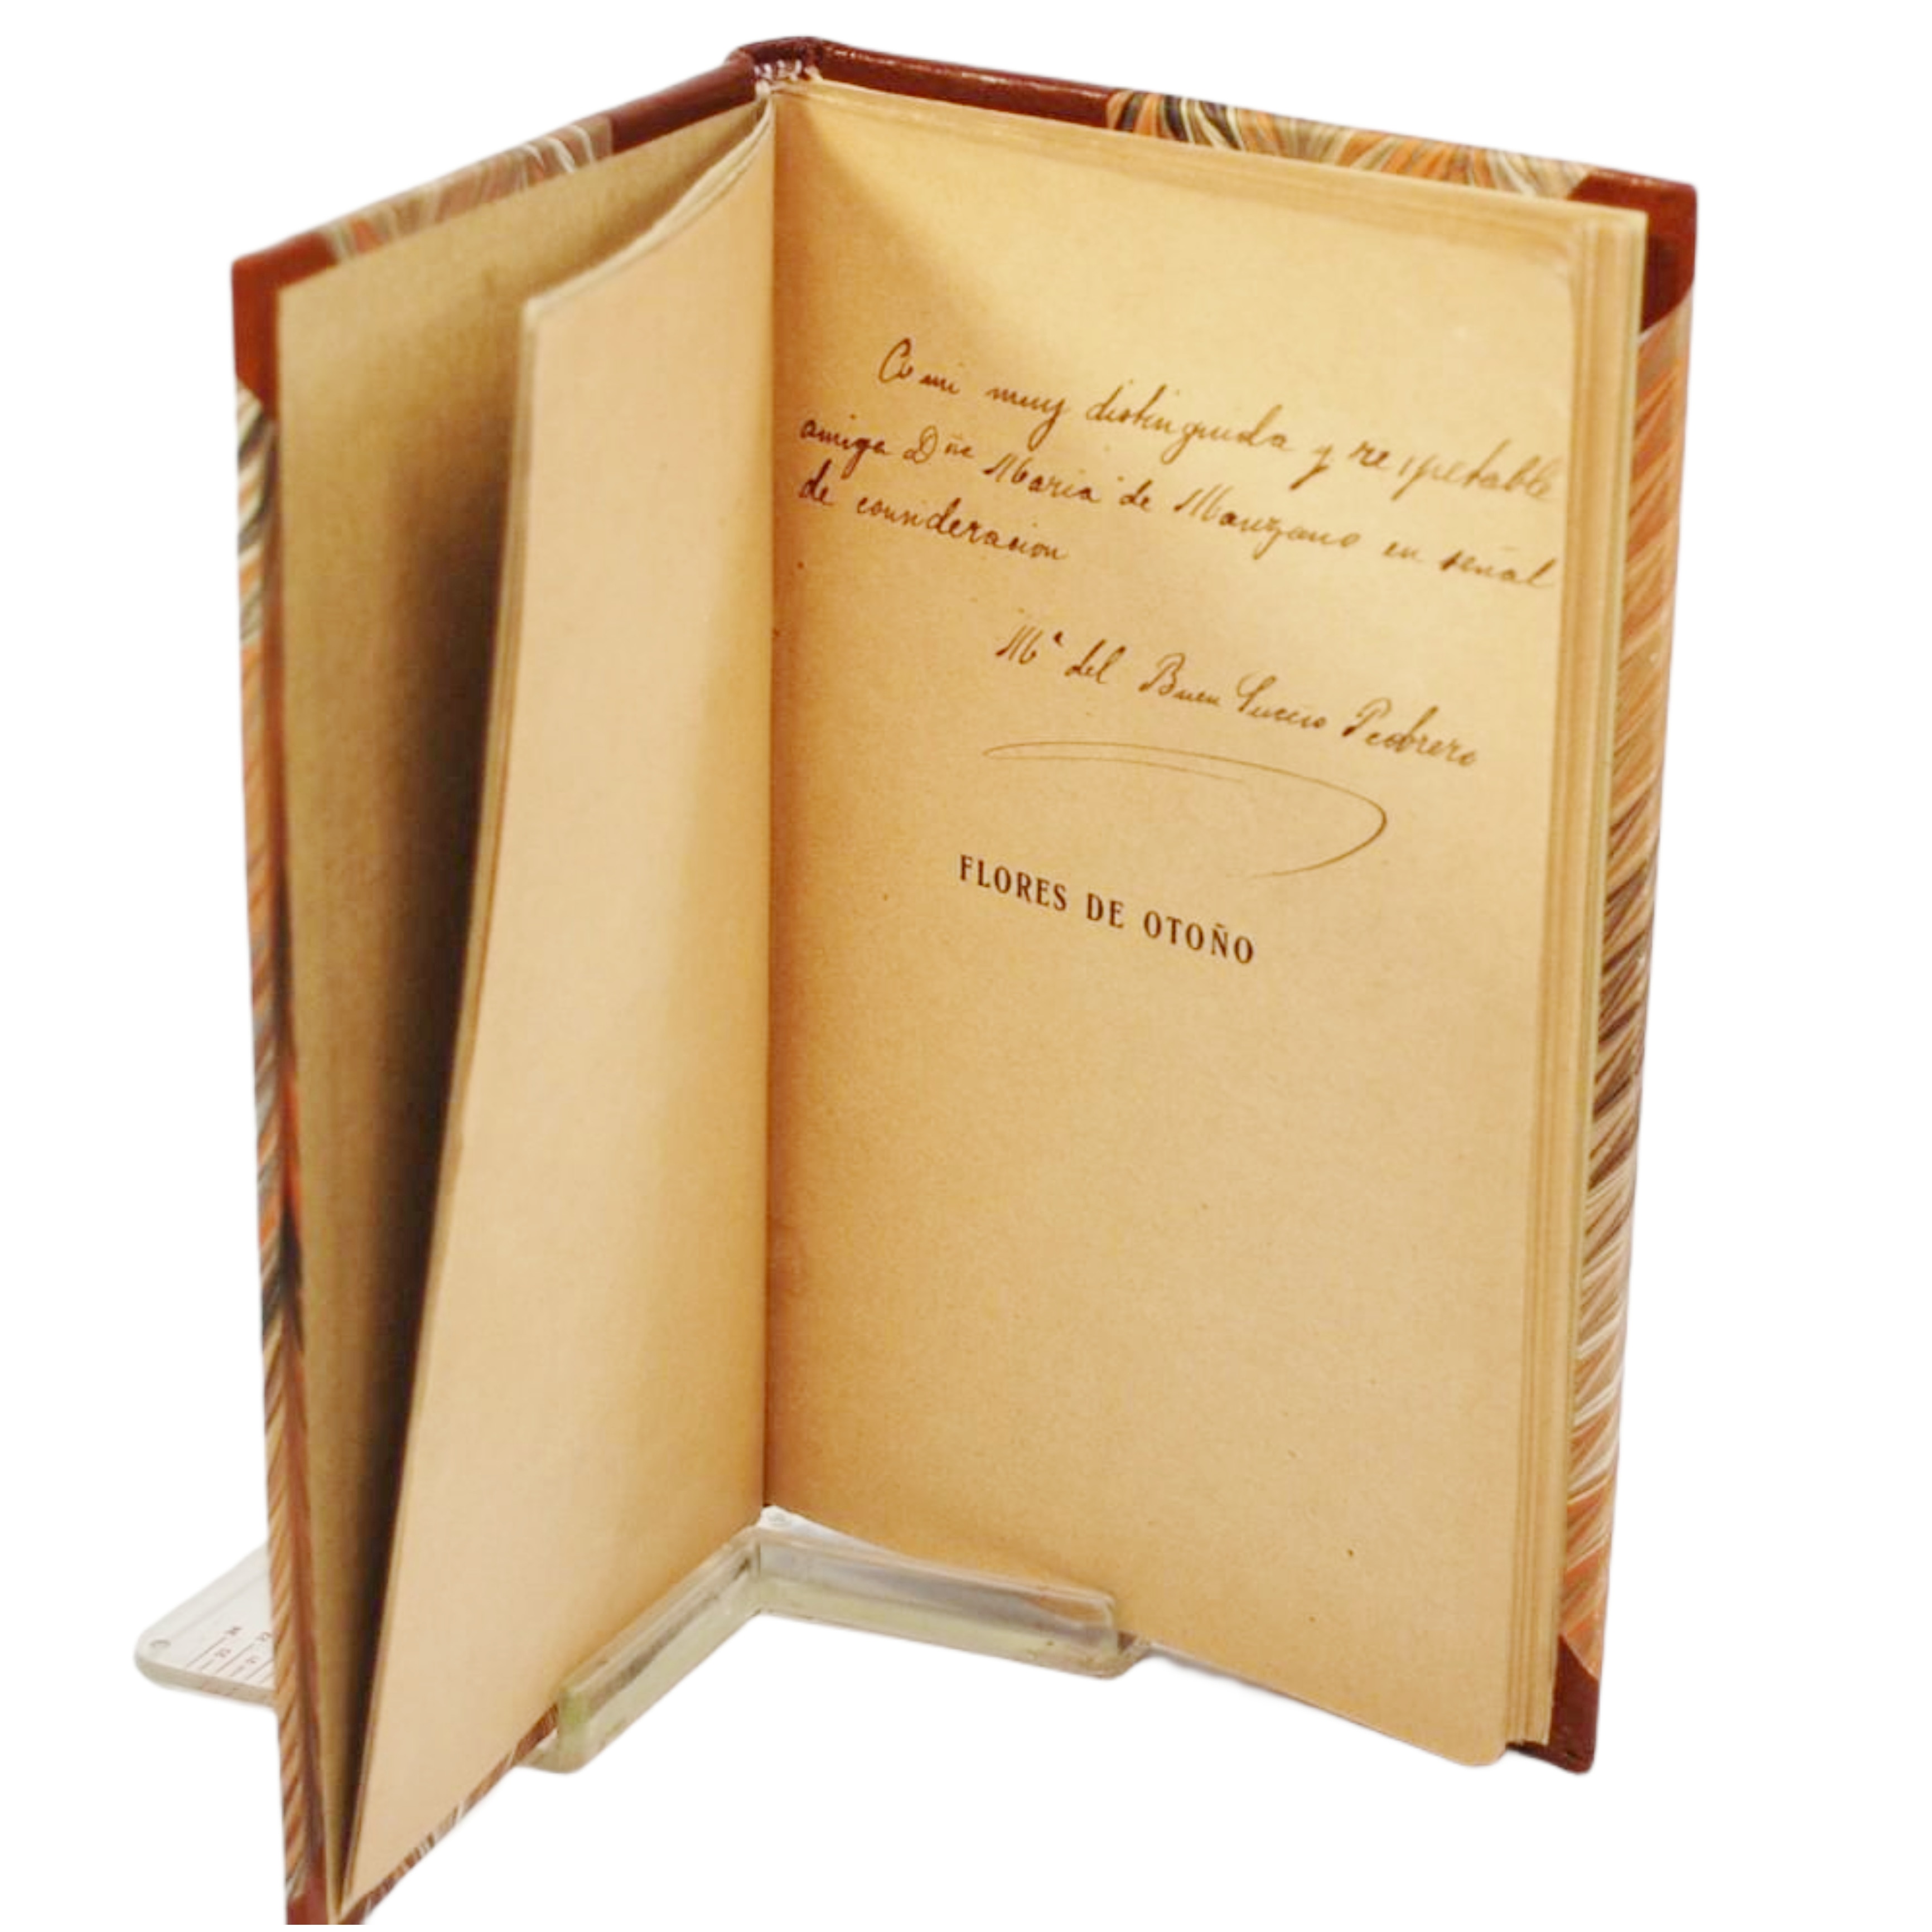 A mi muy distinguida y respetable
amiga Dña María de Manzano en señal
de consideracion
Mª del Buen Suceso Pedrero
FLORES DE OTOÑO